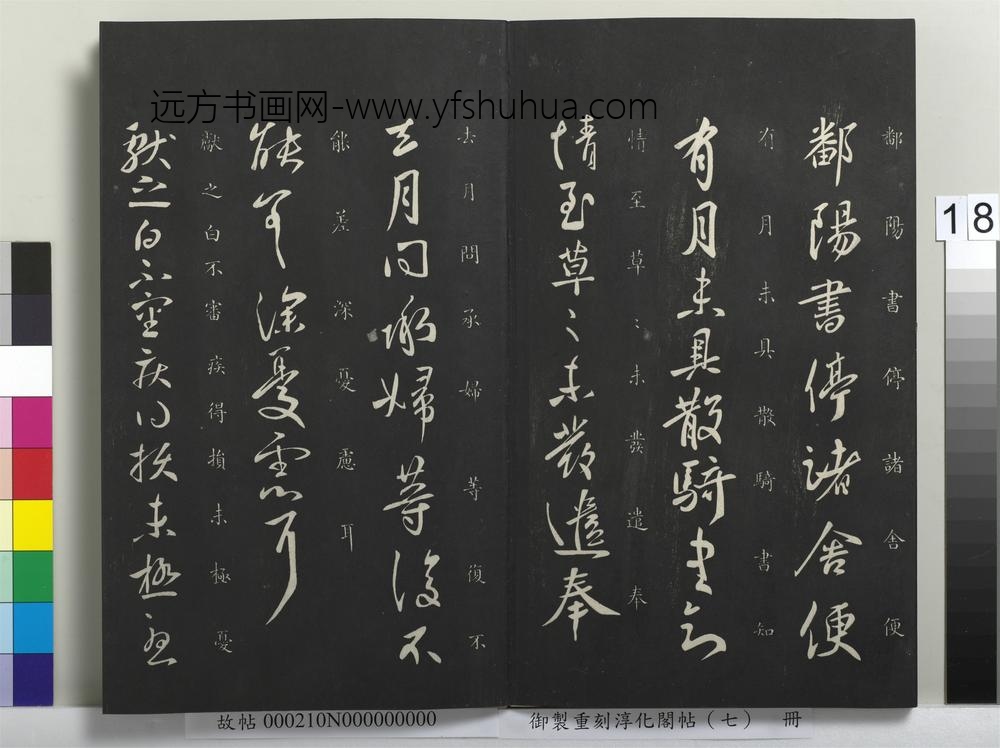 远方书画网-www.yfshuhua.com
鄱陽書停諸舍便
鄱陽書停諸舍便
有月未具散騎書知
有月未具散騎書知
情至草〻未發遣奉
情至草〻未發遣奉
去月問承婦等復不
去月問承婦等復不
能差深憂慮耳
能差深憂慮耳
獻之白不審疾得損未極憂
獻之白不審疾得損未極憂
18
故帖 000210N000000000
御製重刻淳化閣帖（七） 冊